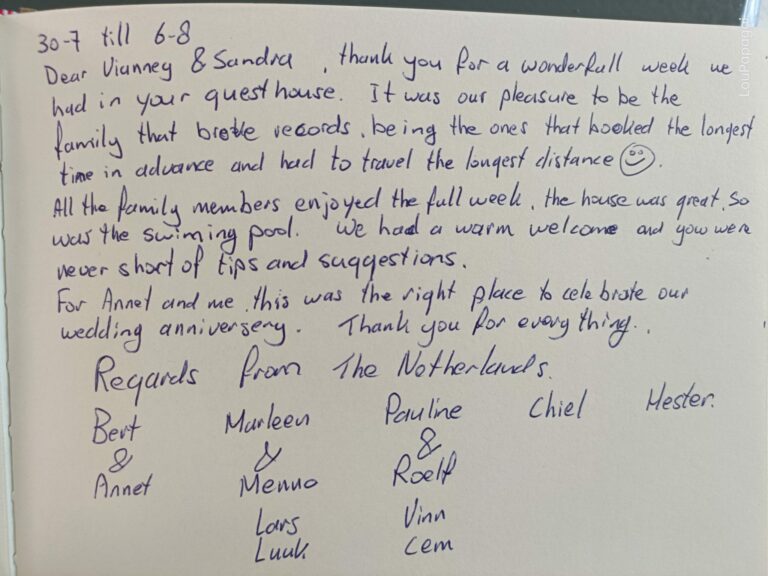 30-7 till 6-8
Dear Vianney & Sandra, thank you for a wonderfull week we
had in your guesthouse. It was our pleasure to be the
family that broke records, being the ones that booked the longest
time in advance and had to travel the longest distance ☺.
All the family members enjoyed the full week, the house was great, so
was the swiming pool. We had a warm welcome and you were
never short of tips and suggestions.
For Annet and me, this was the right place to celebrate our
wedding anniversery. Thank you for everything.
Regards from The Netherlands.
Bert Marleen Pauline Chiel Hester.
& & &
Annet Menno Roelf
Lars Vinn
Luuk Cem
LouPapagei